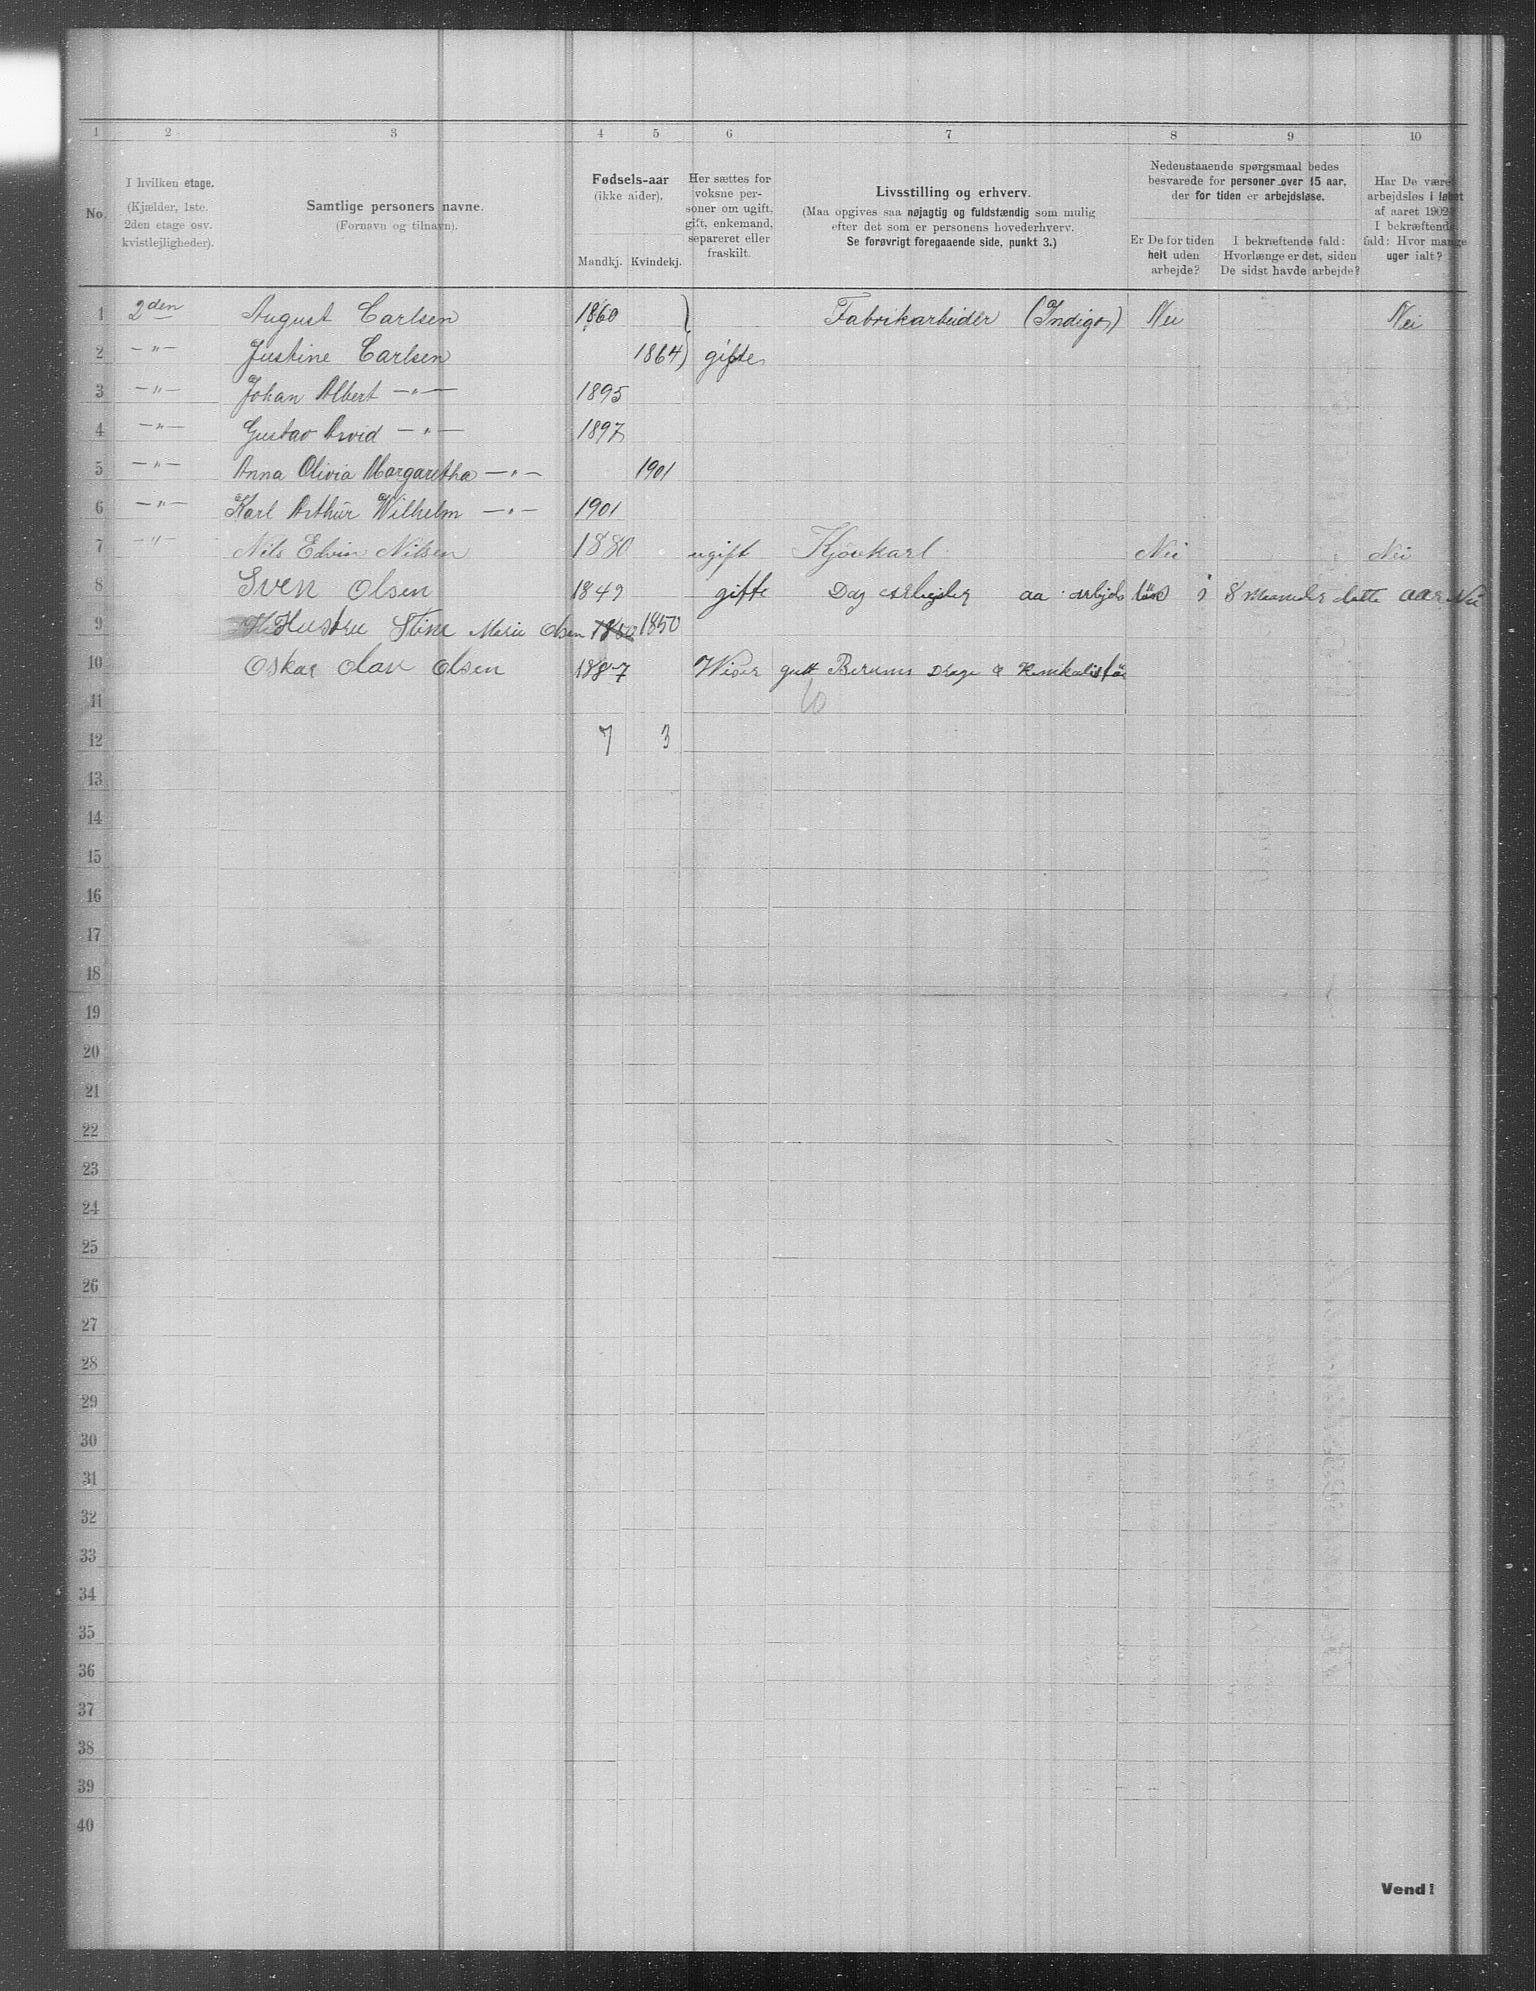 1 2 3 4 5 6 7 8 9 10
No.
I hvilken etage.
(Kjælder, 1ste.
2den etage osv.
kvistlejligheder).
Samtlige personers navne.
(Fornavn og tilnavn).
Fødsels-aar
(ikke alder).
Mandkj. Kvindekj.
Her sættes for
voksne per-
soner om ugift,
gift, enkemand,
separeret eller
fraskilt.
Livsstilling og erhverv.
(Maa opgives saa nøjagtig og fuldstændig som mulig
efter det som er personens hovederhverv.
Se forøvrigt foregaaende side, punkt 3.)
Nedenstaaende spørgsmaal bedes
besvarede for personer over 15 aar,
der for tiden er arbejdsløse.
Er De for tiden
helt uden
arbejde?
I bekræftende fald:
Hvorlænge er det, siden
De sidst havde arbejde?
Har De været
arbejdsløs i løbet
af aaret 1902?
I bekræftende
fald: Hvor mange
uger ialt?
1 2den August Carlsen 1860 Fabrikarbeider (Indigo) Nei Nei
2 —"— Justine Carlsen 1864 gifte
3 —"— Johan Albert —"— 1895
4 —"— Gustav Arvid —"— 1897
5 —"— Anna Olivia Margaretha —"— 1901
6 —"— Karl Arthur Wilhelm —"— 1901
7 —"— Nils Edvin Nilsen 1880 ugift Kjøvkarl Nei Nei
8 Sven Olsen 1849 gifte Dag arbejder aa arbejds løs i 8 Maaneder dette aar Nei
9 Hustru Stine Marie Olsen 1850 1850
10 Oskar Olav Olsen 1887 Viser gutt Berums Drage &
11
12 7 3
13
14
15
16
17
18
19
20
21
22
23
24
25
26
27
28
29
30
31
32
33
34
35
36
37
38
39
40
Vend!